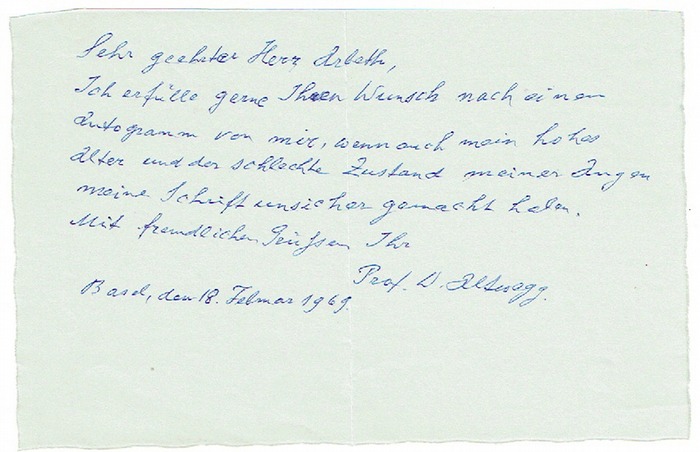 Sehr geehrter Herr Arbeth,
Ich erfülle gerne Ihren Wunsch nach einem
Autogramm von mir, wenn auch mein hohes
Alter und der schlechte Zustand meiner Augen
meine Schrift unsicher gemacht haben.
Mit freundlichen Grüssen Ihr
Prof. W. Altwegg.
Basel, den 18. Februar 1969.